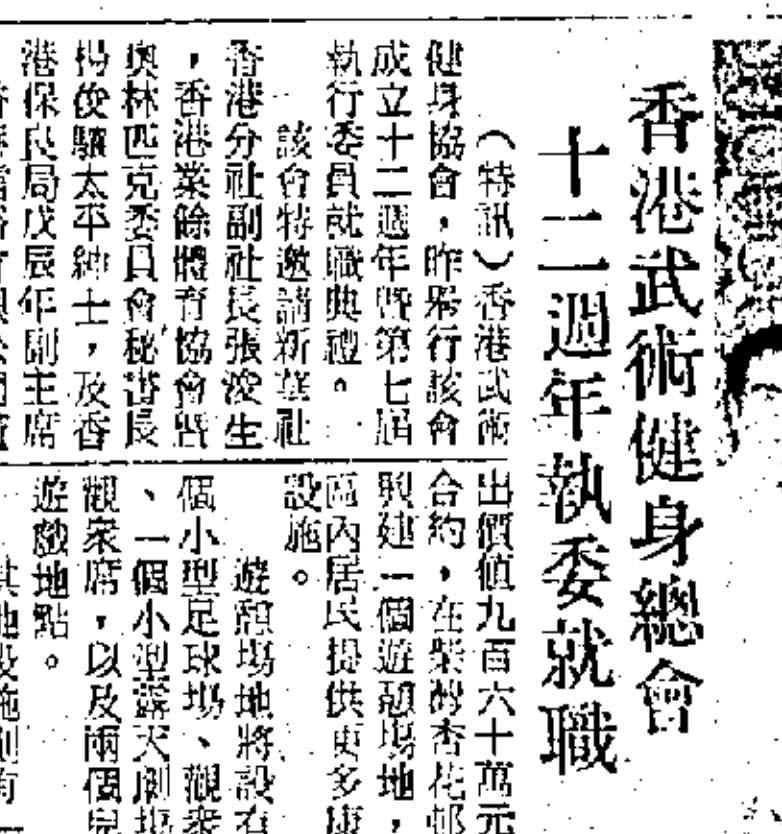 香港武術健身總會
十二週年執委就職
(特訊)香港武術
健身協會,昨舉行該會
成立十二週年暨第七屆
執行委員就職典禮。
該會特邀請新華社
香港分社副社長張浚生
,香港業餘體育協會暨
奧林匹克委員會秘書長
楊俊驥太平紳士,及香
港保良局戊辰年副主席
出價值九百六十萬元
合約,在柴灣杏花邨
興建一個遊憩場地,
區內居民提供更多康
設施。
遊憩場地將設有
個小型足球場、觀衆
、一個小型露天劇場
觀衆席,以及兩個兒
遊戲地點。
其他設施則有一